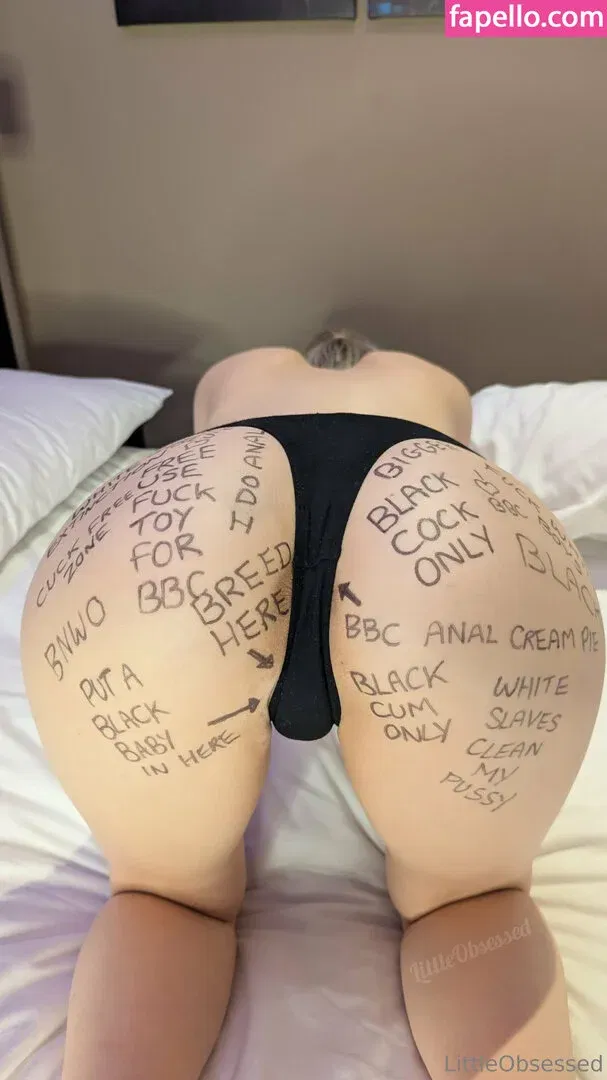 fapello.com
FREE
USE
FUCK
TOY
FOR
BBC
I DO ANAL
CUCK FREE
ZONE
BNWO
BREED
HERE
PUT A
BLACK
BABY
IN HERE
BLACK
COCK
ONLY
BBC ANAL CREAM PIE
BLACK
CUM
ONLY
WHITE
SLAVES
CLEAN
MY
PUSSY
LittleObsessed
LittleObsessed